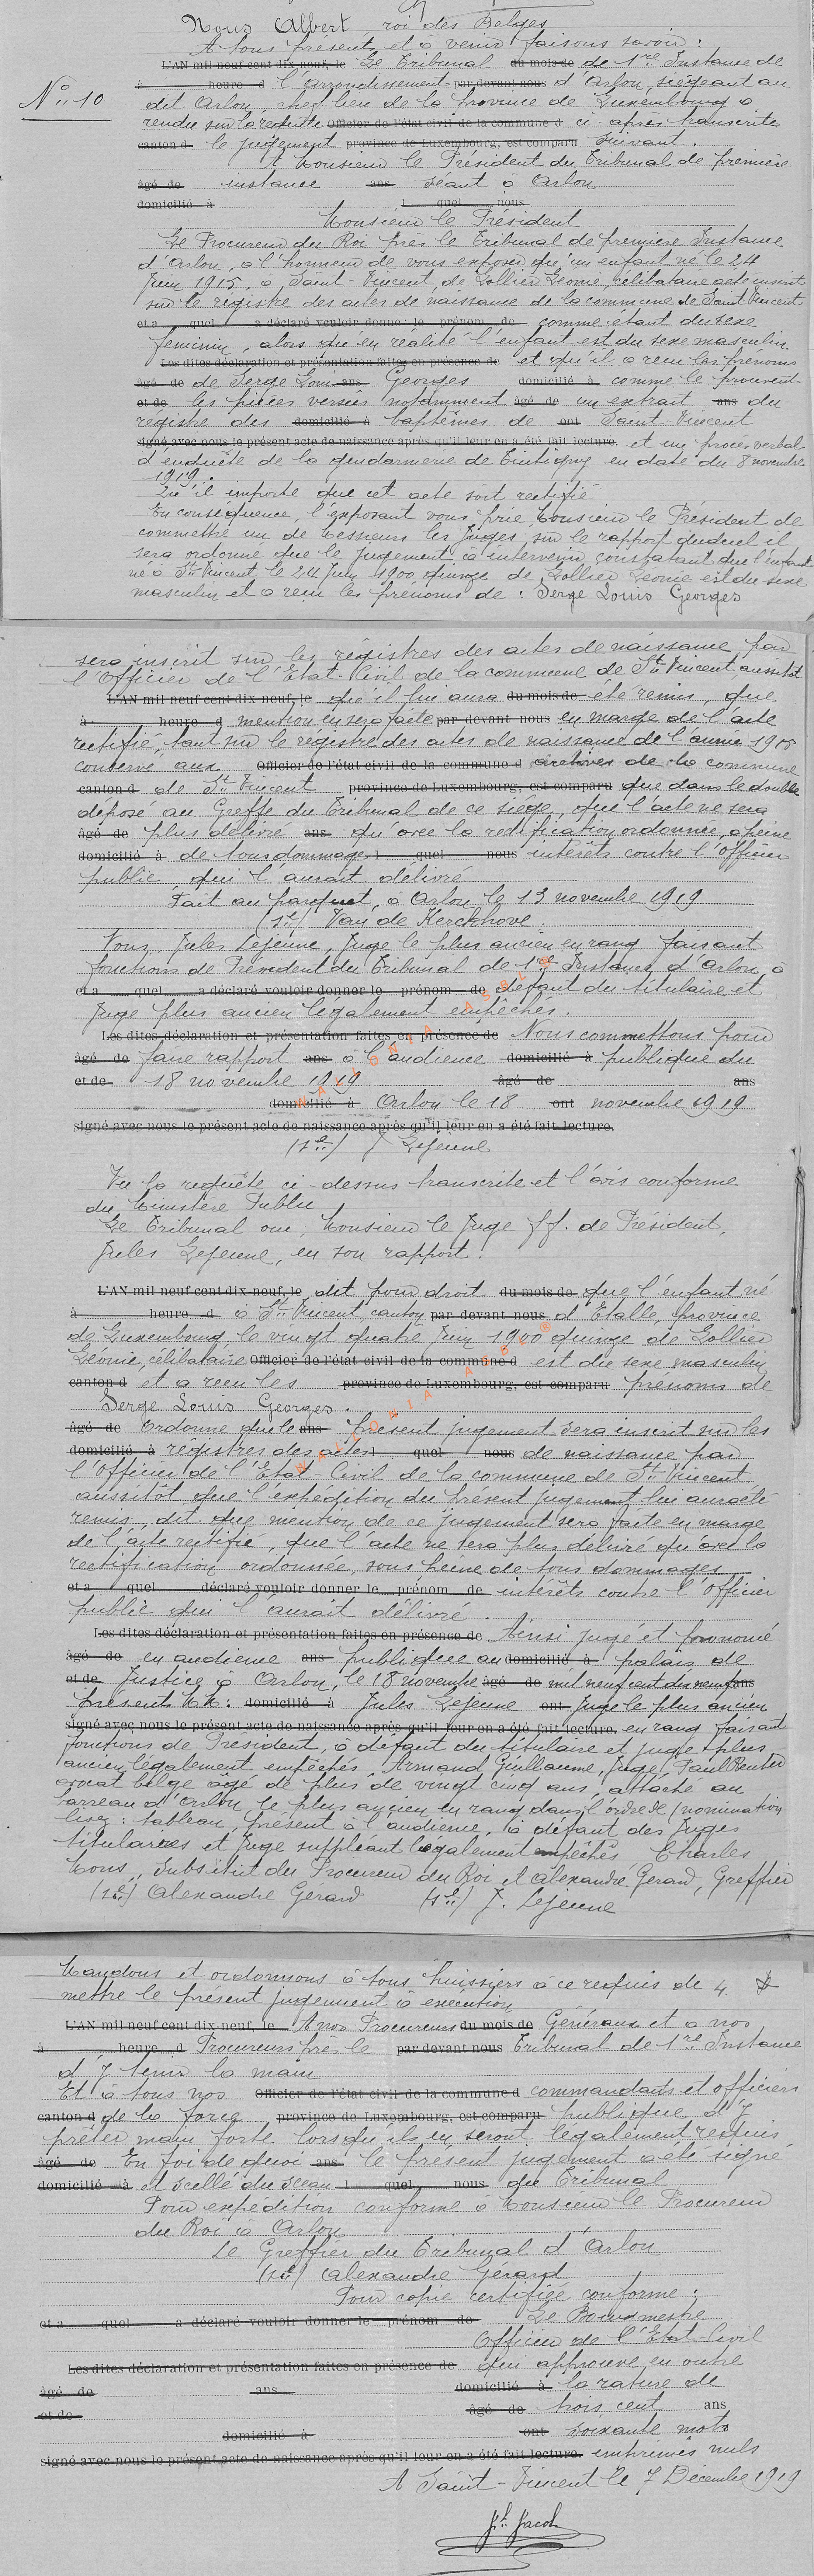 Nous Albert roi des Belges
A tous présents et à venir faisons savoir :
L'AN mil neuf cent dix-neuf, le Le Tribunal du mois de de 1re Instance de
N° 10
à heure d l'arrondissement par devant nous d'Arlon, siégeant au
dit Arlon, chef lieu de la province de Luxembourg a
rendu sur la requête Officier de l'état civil de la commune d ci après transcrite
canton d le jugement province de Luxembourg, est comparu suivant.
A Monsieur le Président du Tribunal de première
âgé de instance ans séant à Arlon
domicilié à l quel nous
Monsieur le Président
Le Procureur du Roi près le Tribunal de première Instance
d'Arlon, a l'honneur de vous exposer qu'un enfant né le 24
Juin 1915, à Saint-Vincent, de Gollier Léonie, célibataire acte inscrit
sur le registre des actes de naissance de la commune de Saint Vincent
et a quel a déclaré vouloir donner le prénom de comme étant du sexe
féminin, alors qu'en réalité l'enfant est du sexe masculin
Les dites déclaration et présentation faites en présence de et qu'il a reçu les prénoms
âgé de de Serge Louis ans Georges domicilié à comme le prouvent
et de les pièces versées notamment âgé de un extrait ans du
registre des domicilié à baptêmes de ont Saint-Vincent
signé avec nous le présent acte de naissance après qu'il leur en a été fait lecture. et un procès verbal
d'enquête de la gendarmerie de Tintigny en date du 8 novembre
1919.
Qu'il importe que cet acte soit rectifié
En conséquence, l'exposant vous prie Monsieur le Président de
commettre un de Messieurs les Juges, sur le rapport duquel il
sera ordonné que le Jugement à intervenir constatant que l'enfant
né à St Vincent le 24 Juin 1900 quinze de Gollier Léonie est du sexe
masculin et a reçu les prénoms de : Serge Louis Georges
sera inscrit sur les régistres des actes de naissance par
l'Officier de l'Etat-Civil de la commune de St Vincent aussitôt
L'AN mil neuf cent dix-neuf, le qu'il lui aura du mois de été remis, que
à heure d mention en sera faite par devant nous en marge de l'acte
rectifié, tant sur le régistre des actes de naissance de l'année 1915
conservé aux Officier de l'état civil de la commune d archives de la commune
canton d de St Vincent province de Luxembourg, est comparu que dans le double
déposé au Greffe du Tribunal de ce siège, que l'acte ne sera
âgé de plus délivré ans qu'avec la rectification ordonnée, à peine
domicilié à de tous dommages l quel nous intérêts contre l'Officier
public qui l'aurait délivré
Fait au parquet, à Arlon, le 13 novembre 1919
(sé) Van de Kerckhove
Nous, Jules Lejeune, Juge le plus ancien en rang faisant
fonctions de Président du Tribunal de 1re Instance d'Arlon, à
et a quel a déclaré vouloir donner le prénom de défaut du titulaire et
Juge plus ancien légalement empêchés.
Les dites déclaration et présentation faites en présence de Nous commettons pour
âgé de faire rapport ans à l'audience domicilié à publique du
et de 18 novembre 1919 âgé de ans
domicilié à Arlon le 18 ont novembre 1919
signé avec nous le présent acte de naissance après qu'il leur en a été fait lecture.
(sé) J Lejeune
WALLONIA ASBL
Vu la requête ci-dessus transcrite et l'avis conforme
du Ministère Public
Le Tribunal oui, Monsieur le Juge ff. de Président,
Jules Lejeune, en son rapport.
L'AN mil neuf cent dix-neuf, le dit pour droit du mois de que l'enfant né
à heure d à St Vincent, canton par devant nous d'Etalle, province
de Luxembourg, le vingt quatre Juin 1900 quinze de Gollier
Léonie, célibataire Officier de l'état civil de la commune d est du sexe masculin
canton d et a reçu les province de Luxembourg, est comparu prénoms de
Serge Louis Georges.
âgé de Ordonne que le ans présent jugement sera inscrit sur les
domicilié à régistres des actes l quel nous de naissance par
l'Officier de l'Etat-Civil de la commune de St Vincent
aussitôt que l'expédition du présent jugement lui aura été
remis, dit que mention de ce jugement sera faite en marge
de l'acte rectifié, que l'acte ne sera plus délivré qu'avec la
rectification ordonnée, sous peine de tous dommages
et a quel déclaré vouloir donner le prénom de intérêts contre l'Officier
public qui l'aurait délivré.
Les dites déclaration et présentation faites en présence de Ainsi jugé et prononcé
âgé de en audience ans publique au domicilié à palais de
et de Justice à Arlon, le 18 novembre âgé de mil neuf cent dix neuf ans
Présents MM: domicilié à Jules Lejeune ont Juge le plus ancien
signé avec nous le présent acte de naissance après qu'il leur en a été fait lecture. en rang faisant
fonctions de Président, à défaut du titulaire et juge plus
ancien légalement empêchés, Armand Guillaume, Juge, Paul Reuter
avocat belge agé de plus de vingt cinq ans, attaché au
barreau d'Arlon le plus ancien en rang dans l'ordre de (nomination
lisez : tableau, présent à l'audience, à défaut des Juges
titulaires et Juge suppléant légalement empêchés Charles
Mons, Substitut du Procureur du Roi et Alexandre Gerard, Greffier
(sé) Alexandre Gerard (sé) J. Lejeune
WALLONIA ASBL
Mandons et ordonnons à tous huissiers à ce requis de 4
mettre le présent jugement à exécution
L'AN mil neuf cent dix-neuf, le A nos Procureurs du mois de Généraux et à nos
à heure d Procureurs près le par devant nous Tribunal de 1re Instance
d'y tenir la main
Et à tous nos Officier de l'état civil de la commune d commandants et officiers
canton d de la force province de Luxembourg, est comparu publique d'y
prêter main forte lorsqu'ils en seront légalement requis
âgé de En foi de quoi ans le présent jugement a été signé
domicilié à et scellé du sceau l quel nous du Tribunal
Pour expédition conforme à Monsieur le Procureur
du Roi à Arlon
Le Greffier du Tribunal d'Arlon
(sé) Alexandre Gérard
Pour copie certifiée conforme :
et a quel a déclaré vouloir donner le prénom de Le Bourgmestre
Officier de l'Etat-Civil
Les dites déclaration et présentation faites en présence de qui approuve en outre
âgé de ans domicilié à la rature de
et de âgé de trois cent ans
domicilié à ont soixante mots
signé avec nous le présent acte de naissance après qu'il leur en a été fait lecture. imprimés nuls
A Saint-Vincent le 7 Décembre 1919
Jh Jacob